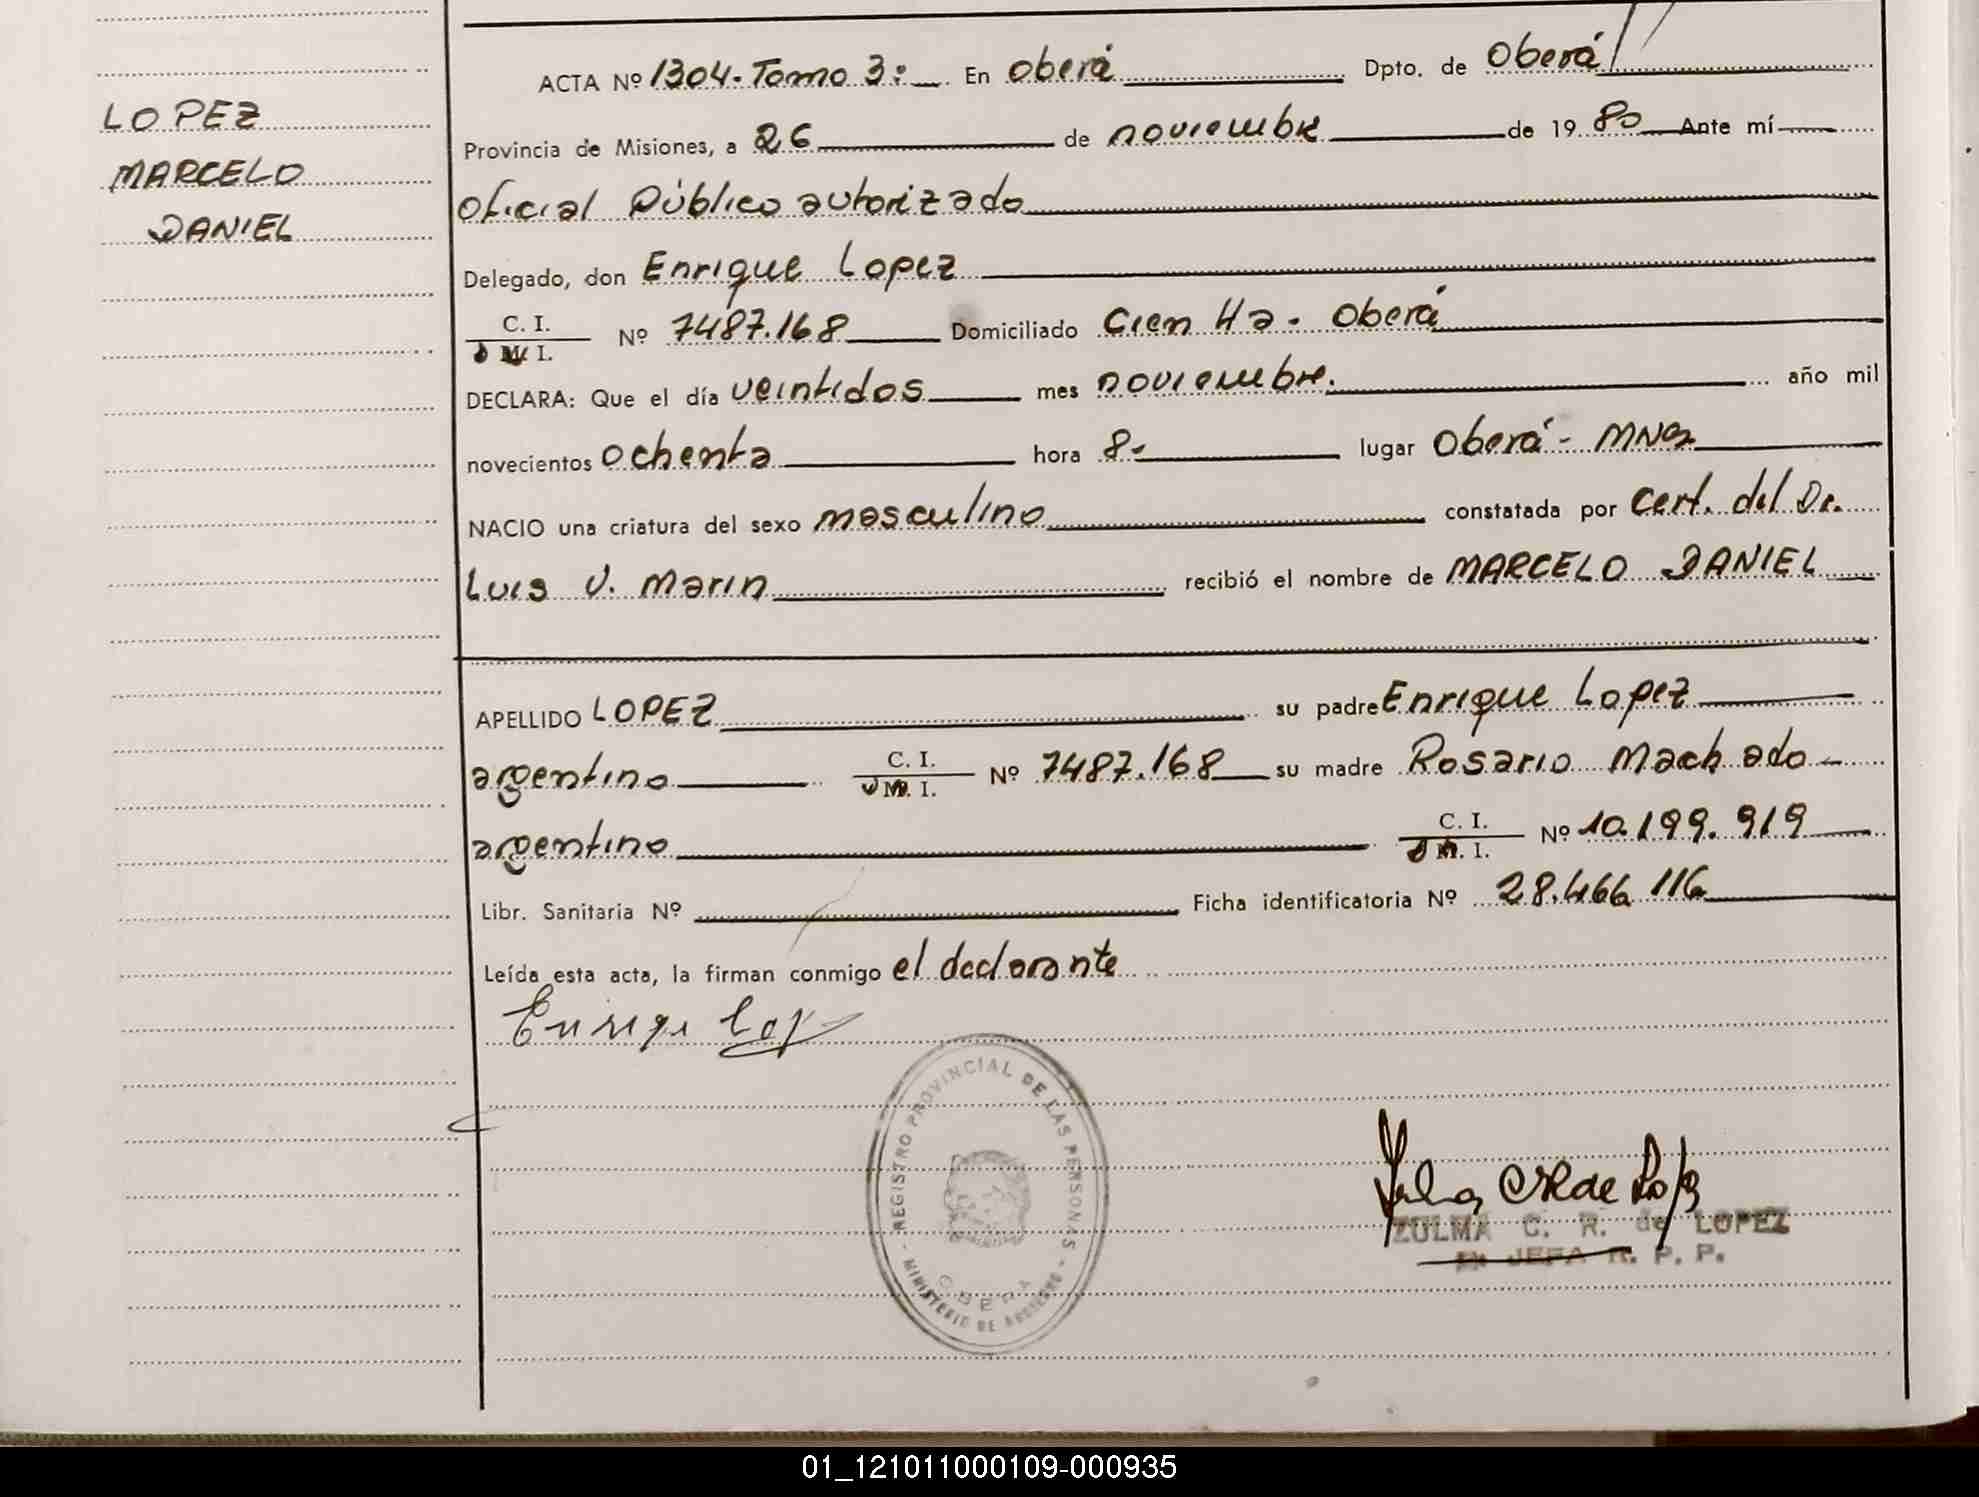 LOPEZ
MARCELO
DANIEL
ACTA Nº 1304. Tomo 3: En Oberá Dpto. de Oberá
Provincia de Misiones, a 26 de noviembre de 1980 Ante mí
Oficial Público autorizado
Delegado, don Enrique Lopez
C. I.
M. I. Nº 7487.168 Domiciliado Cien Ha. Oberá
DECLARA: Que el día veintidos mes noviembre. año mil
novecientos ochenta hora 8- lugar Oberá - MNes
NACIO una criatura del sexo masculino constatada por Cert. del Dr.
Luis V. Marin recibió el nombre de MARCELO DANIEL
APELLIDO LOPEZ su padre Enrique Lopez
argentino C. I. M. I. Nº 7487.168 su madre Rosario Machado
argentino C. I. M. I. Nº 10.199.919
Libr. Sanitaria Nº Ficha identificatoria Nº 28.466.116
Leída esta acta, la firman conmigo el declarante
REGISTRO PROVINCIAL DE LAS PERSONAS
MINISTERIO DE GOBIERNO
OBERA
ZULMA C. R. de LOPEZ
JEFA R. P. P.
01_121011000109-000935